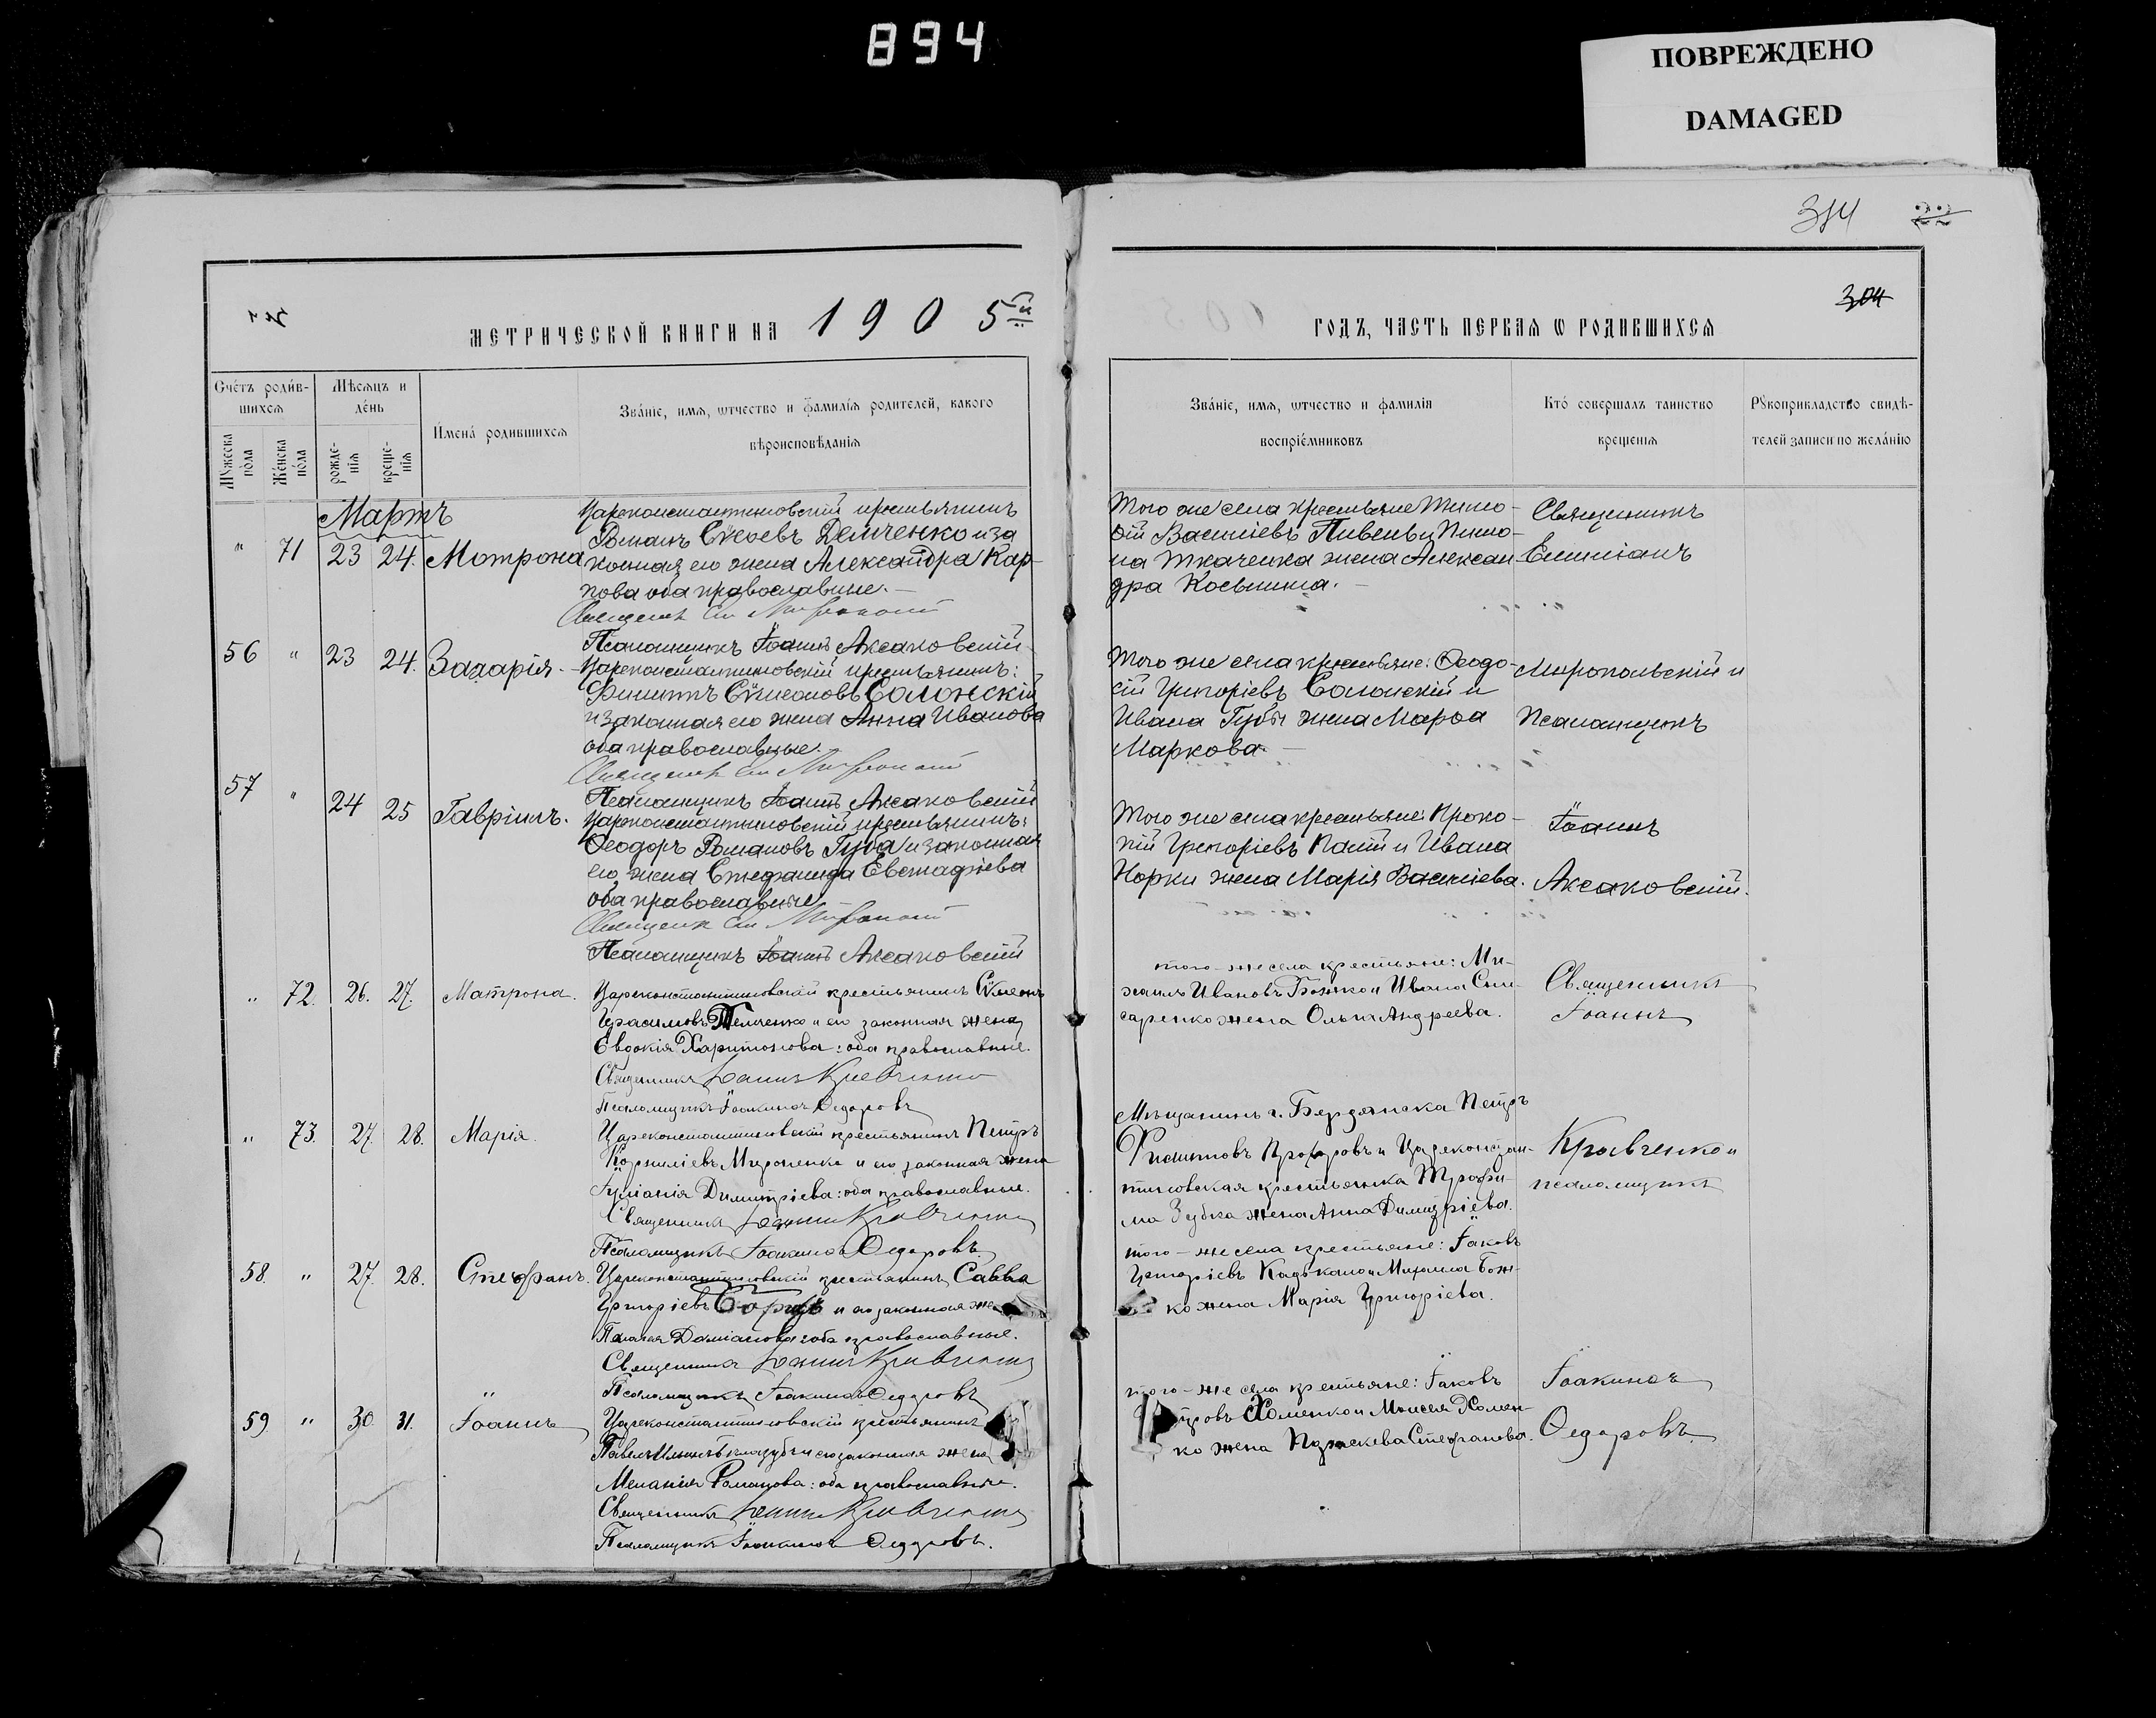 894
ПОВРЕЖДЕНО
DAMAGED
314 22
304
МЕТРИЧЕСКОЙ КНИГИ НА 1905й
ГОДЪ, ЧАСТЬ ПЕРВАЯ Ѡ РОДИВШИХСЯ
Сче́тъ роди́в-
шихся
Мѣсяцъ и
де́нь
Мꙋжеска
по́ла
Же́нска
по́ла
рожде-
нія
креще-
нія
И́мена́ родившихся
Зва́ніе, имя, ѿтчество и фамилі́я родителей, какого
вѣроисповѣданія
Зва́ніе, имя, ѿтчество и фамилія
воспріе́мниковъ
Кто́ совершалъ таинство
крещенія
Рꙋкоприкладство свидѣ-
телей записи по жела́нію
Мартъ
" 71 23 24. Мотрона
Цареконстантиновскій крестьянинъ
Романъ Сѵсоевъ Демченко и за
конная его жена Александра Кар-
пова оба православные.
Того же села крестьяне Тимо-
ѳій Васильевъ Пивень и Пимо-
на Ткаченка жена Алексан
дра Косьмина.
Священникъ
Емиліанъ
Псаломщикъ Іоаннъ Аксаковскій
56 " 23 24. Захарія.
Цареконстантиновскій крестьянинъ:
Филиппъ Сѵмеоновъ Солонскій
и законная его жена Анна Иванова
оба православные.
Того же села крестьяне: Ѳеодо-
сій Григоріевъ Солонскій и
Ивана Губы жена Марѳа
Маркова.
Миропольскій и
псаломщикъ
Псаломщикъ Іоаннъ Аксаковскій
57 " 24 25 Гавріилъ.
Цареконстантиновскій крестьянинъ:
Ѳеодоръ Романовъ Губа и законная
его жена Стефанида Евстафіева
оба православные
Того же села крестьяне: Проко-
пій Григоріевъ Палій и Ивана
Норки жена Марія Васильева.
Іоаннъ
Аксаковскій.
Псаломщикъ Іоаннъ Аксаковскій
" 72. 26. 27. Матрона.
Цареконстантиновскій крестьянинъ Сѵмеонъ
Герасимовъ Темченко и его законная жена
Евдокія Харитонова: оба православные.
Священникъ Іоаннъ Кравченко
Псаломщикъ Іоакимъ Ѳедоровъ
того-же села крестьяне: Ми-
хаилъ Ивановъ Божко и Ивана Сли-
саренко жена Ольга Андреева.
Священникъ
Іоаннъ
" 73. 27. 28. Марія.
Цареконстантиновскій крестьянинъ Петръ
Корниліевъ Мироненко и его законная жена
Іуліанія Димитріева: оба православные.
Священникъ Іоаннъ Кравченко
Псаломщикъ Іоакимъ Ѳедоровъ.
Мѣщанинъ г. Бердянска Петръ
Филипповъ Прохоровъ и Цареконстан-
тиновская крестьянка Трофи-
ма Зубка жена Анна Димитріева.
Кравченко и
псаломщикъ
58. " 27. 28. Стефанъ.
Цареконстантиновскій крестьянинъ Савва
Григоріевъ и его законная же
Пелагея Даміанова: оба православные.
Священникъ Іоаннъ Кравченко
Псаломщикъ Іоакимъ Ѳедоровъ
того-же села крестьяне: Іаковъ
Григоріевъ и Михаила Бож-
ко жена Марія Григоріева.
59. " 30. 31. Іоаннъ
Цареконстантиновскій крестьянинъ
Павелъ и его законная жена
Меланія Романова: оба православные.
Священникъ Іоаннъ Кравченко
Псаломщикъ Іоакимъ Ѳедоровъ.
того-же села крестьяне: Іаковъ
Хоменко и Моисея Хомен-
ко жена Параскева Стефанова.
Іоакимъ
Ѳедоровъ.